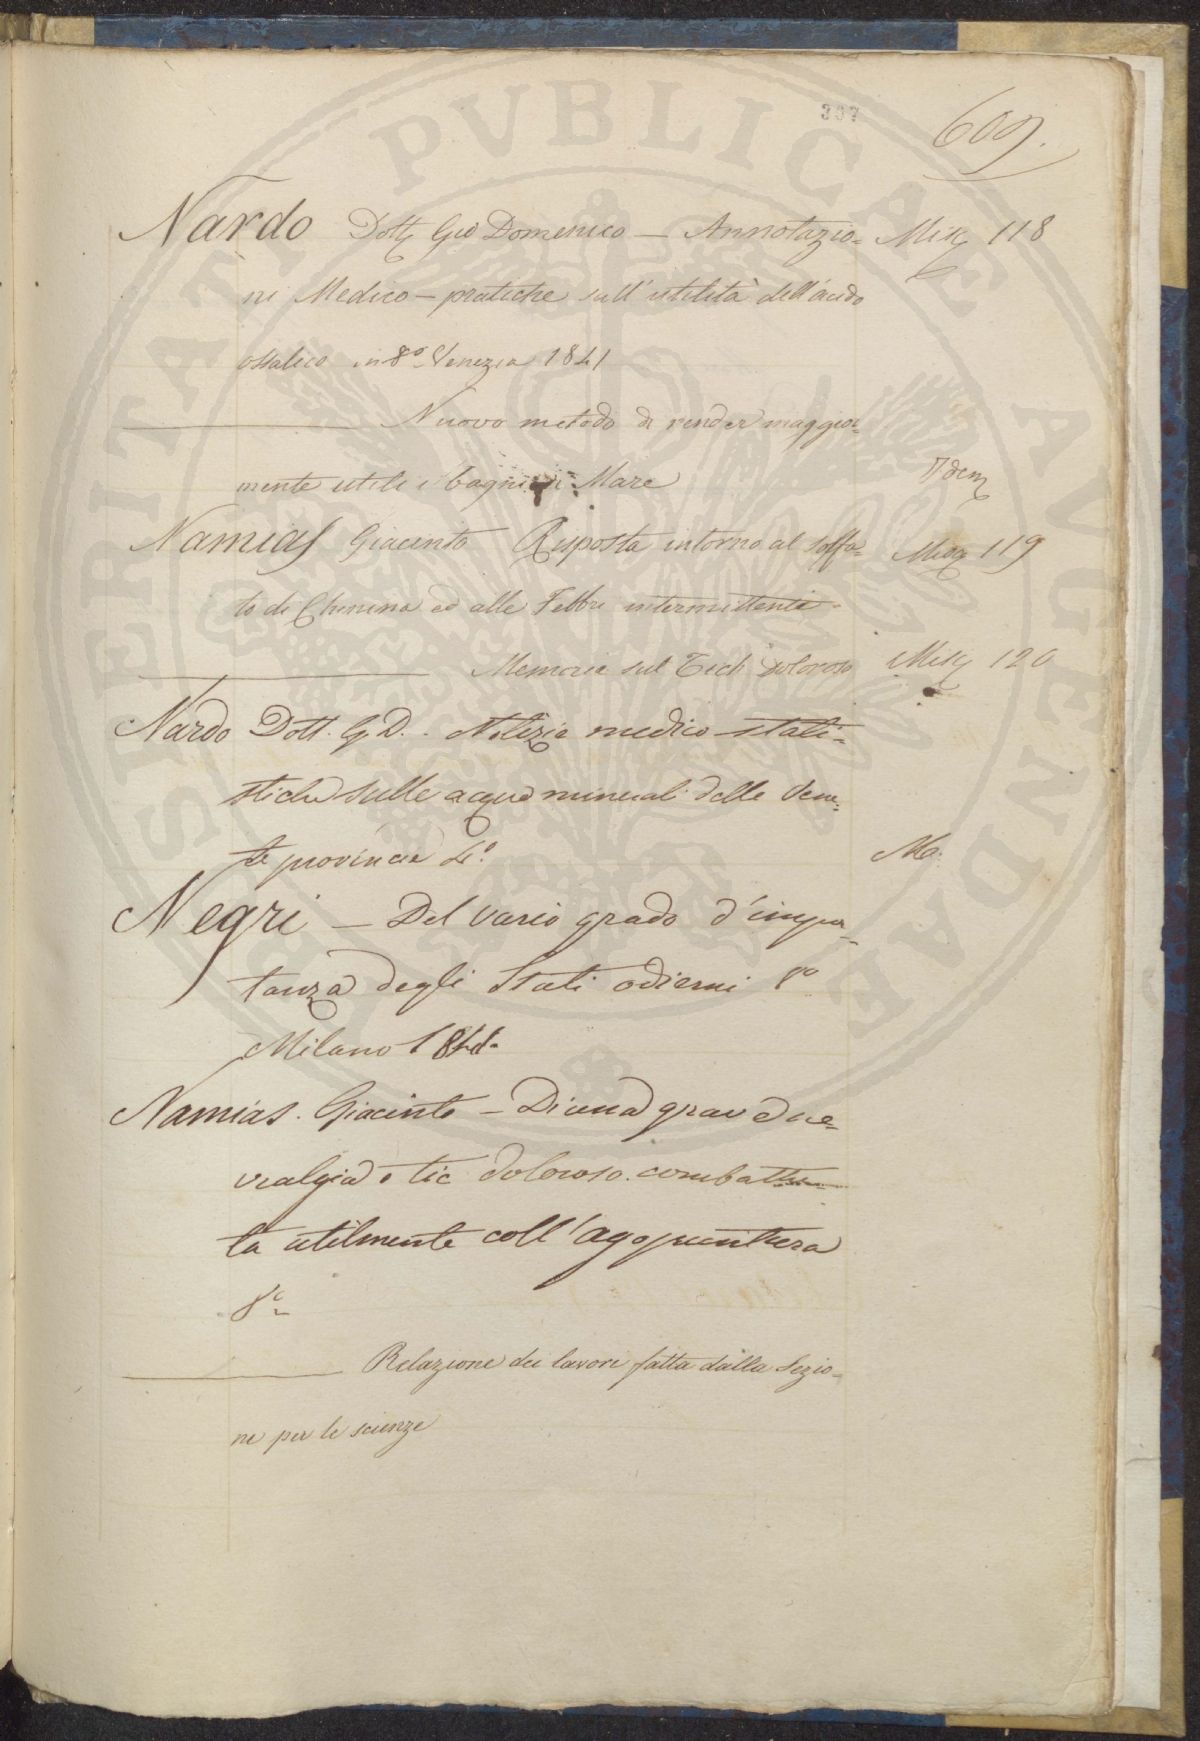 337
609.
Nardo Dott Gio Domenico — Annotazio= Misc 118
ni Medico-pratiche sull'utilità dell'acido
ossalico in 8° Venezia 1841
Nuovo metodo di render maggior=
mente utili i bagni di Mare Idem
Namias Giacinto Risposta intorno al solfa= Misc 119
to di Chinina ed alle Febbri intermittenti
Memoria sul Tich doloroso Misc 120
Nardo Dott. G. D. Notizie medico-stati=
stiche sulle acque minerali delle Vene=
te provincie 4° Ma:
Negri — Del vario grado d'impor=
tanza degli Stati odierni 8°
Milano
Namias. Giacinto — Di una grave ne=
vralgia o tic doloroso combattu=
ta utilmente coll'agopuntura
8°
Relazione dei lavori fatta dalla Sezio=
ne per le scienze